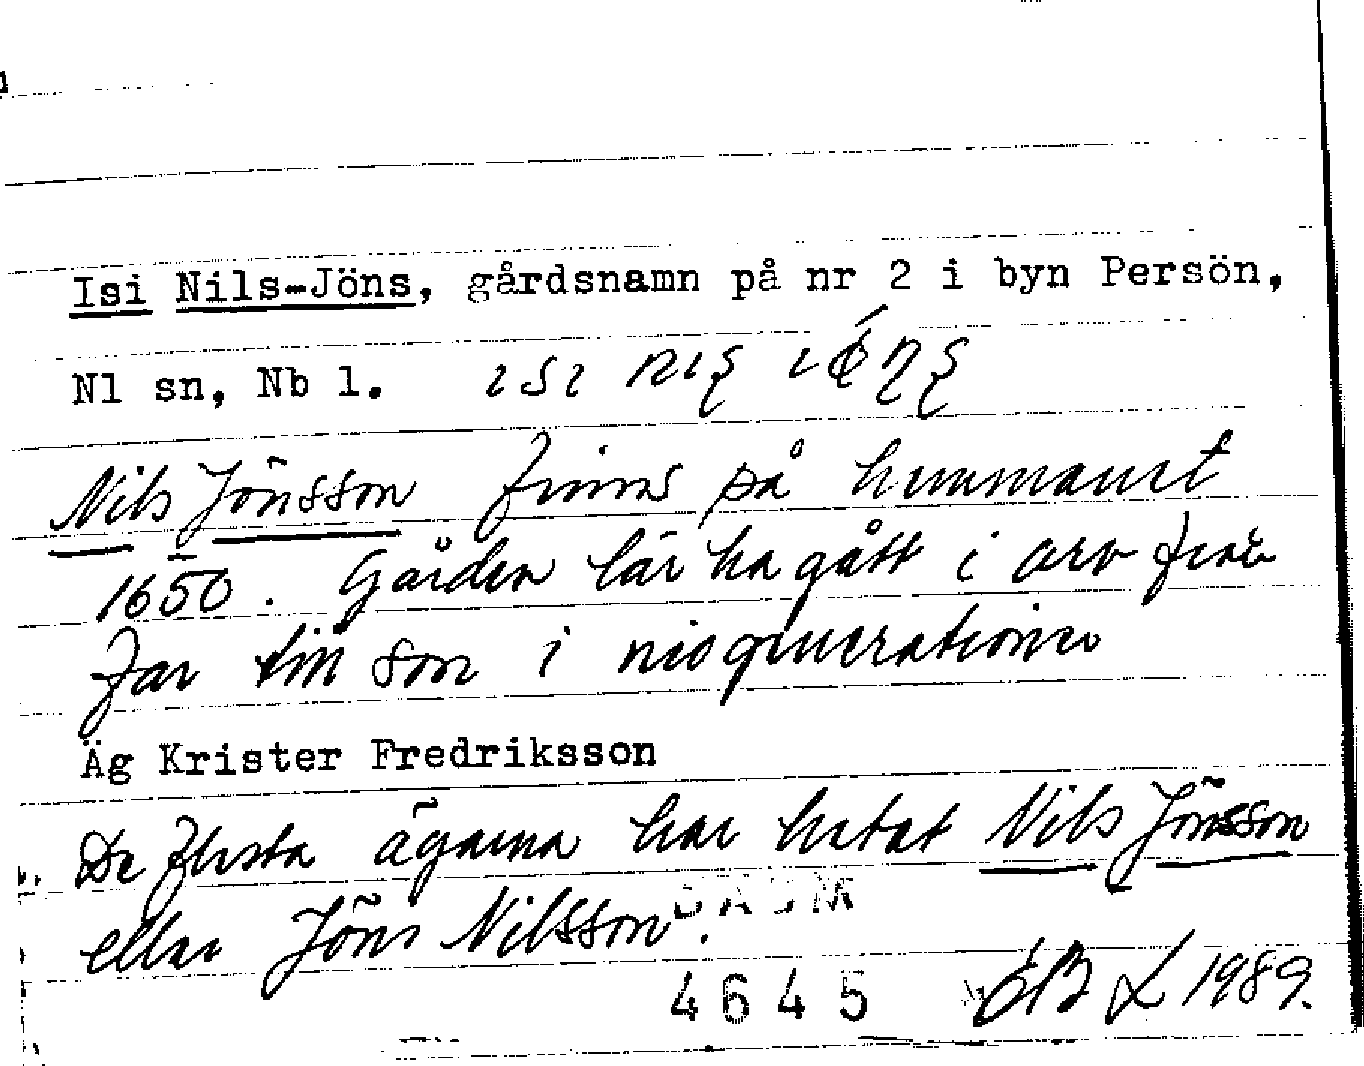 Isi Nils-Jöns, gårdsnamn på nr 2 i byn Persön,
Nl sn, Nb l.
Nils Jönsson finns på hemmanet
1650. Gården lär ha gått i arv från
far till son i nio generationer
Äg Krister Fredriksson
De flesta ägarna har hetat Nils Jönsson
eller Jöns Nilsson.
DAUM
4645 EB 1989.